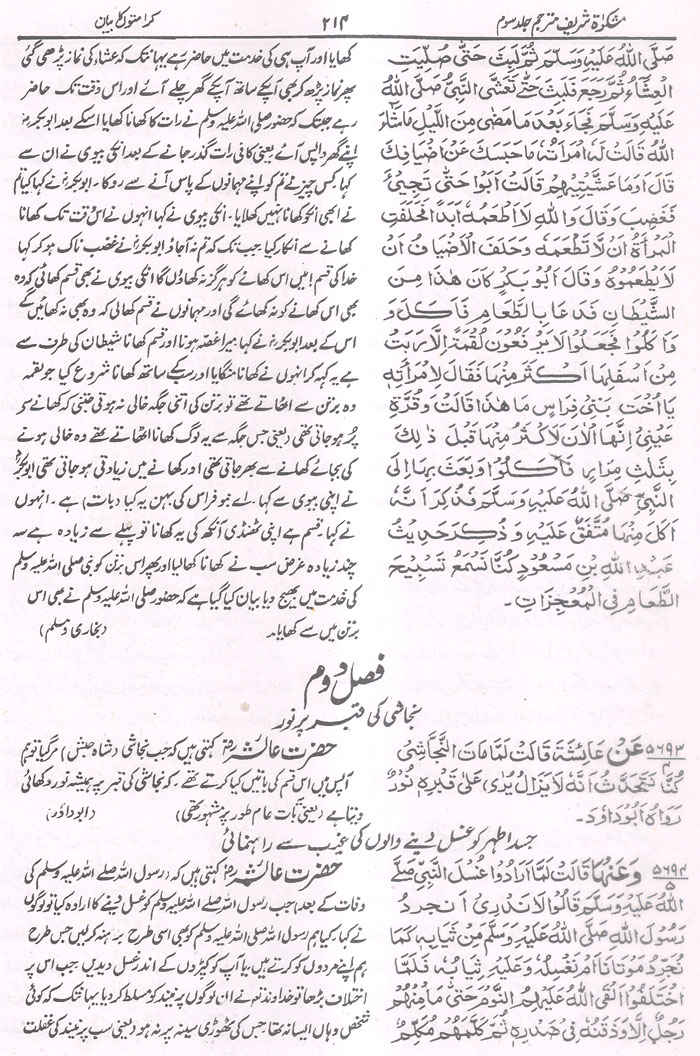 مشکوٰۃ شریف مترجم جلد سوم
۲۱۴
کرامتوں کا بیان
صَلَّى اللهُ عَلَيْهِ وَسَلَّمَ ثُمَّ لَبِثَ حَتّٰى صُلِّيَتِ
الْعِشَاءُ ثُمَّ رَجَعَ فَلَبِثَ حَتّٰى تَعَشَّى النَّبِيُّ صَلَّى اللهُ
عَلَيْهِ وَسَلَّمَ فَجَاءَ بَعْدَ مَا مَضٰى مِنَ اللَّيْلِ مَاشَاءَ
اللهُ قَالَتْ لَهُ امْرَأَتُهُ مَا حَبَسَكَ عَنْ اَضْيَافِكَ
قَالَ اَوَمَا عَشَّيْتِيْهِمْ قَالَتْ اَبَوْا حَتّٰى تَجِيْئَ
فَغَضِبَ وَقَالَ وَاللهِ لَا اَطْعَمُهُ اَبَدًا فَحَلَفَتِ
الْمَرْأَةُ اَنْ لَّا تَطْعَمَهُ وَحَلَفَ الْاَضْيَافُ اَنْ
لَا يَطْعَمُوْهُ وَقَالَ اَبُوْ بَكْرٍ كَانَ هٰذَا مِنَ
الشَّيْطَانِ فَدَعَا بِالطَّعَامِ فَاَكَلَ وَ
وَاَكَلُوْا فَجَعَلُوْا لَا يَرْفَعُوْنَ لُقْمَةً اِلَّا رَبَتْ
مِنْ اَسْفَلِهَا اَكْثَرَ مِنْهَا فَقَالَ لِامْرَأَتِهِ
يَا اُخْتَ بَنِيْ فِرَاسٍ مَا هٰذَا قَالَتْ وَقُرَّةِ
عَيْنِيْ اِنَّهَا الْاٰنَ لَاَكْثَرُ مِنْهَا قَبْلَ ذٰلِكَ
بِثَلٰثِ مِرَارٍ فَاَكَلُوْا وَبَعَثَ بِهَا اِلَى
النَّبِيِّ صَلَّى اللهُ عَلَيْهِ وَسَلَّمَ فَذُكِرَ اَنَّهُ
اَكَلَ مِنْهَا مُتَّفَقٌ عَلَيْهِ وَذُكِرَ حَدِيْثُ
عَبْدِ اللهِ بْنِ مَسْعُوْدٍ كُنَّا نَسْمَعُ تَسْبِيْحَ
الطَّعَامِ فِي الْمُعْجِزَاتِ۔
کھایا اور آپ ہی کی خدمت میں حاضر رہے یہانتک کہ عشاء کی نماز پڑھی گئی
پھر نماز پڑھ کر بھی آپکے ساتھ آپکے گھر چلے آئے اور اس وقت تک حاضر
رہے جبتک کہ حضور صلی اللہ علیہ وسلم نے رات کا کھانا کھایا اسکے بعد ابوبکرؓ
اپنے گھر واپس آئے یعنی کافی رات گذر جانے کے بعد انکی بیوی نے ان سے
کہا کس چیز نے تم کو اپنے مہمانوں کے پاس آنے سے روکا۔ ابوبکرؓ نے کہا کیا تم
نے ابھی انکو کھانا نہیں کھلایا۔ انکی بیوی نے کہا انہوں نے اس وقت تک کھانا
کھانے سے انکار کیا جب تک کہ تم نہ آجاؤ ابوبکرؓ نے غضب ناک ہو کر کہا
خدا کی قسم! میں اس کھانے کو ہرگز نہ کھاؤں گا انکی بیوی نے بھی قسم کھائی کہ وہ
بھی اس کھانے کو نہ کھائے گی اور مہمانوں نے قسم کھالی کہ وہ بھی نہ کھائیں گے
اس کے بعد ابوبکرؓ نے کہا۔ میرا غصہ ہونا اور قسم کھانا شیطان کی طرف سے
ہے یہ کہہ کر انہوں نے کھانا منگایا اور سبکے ساتھ کھانا شروع کیا جو لقمہ
وہ برتن سے اٹھاتے تھے تو برتن کی اتنی جگہ خالی نہ ہوتی جتنی کہ کھانے سے
پُر ہو جاتی تھی (یعنی جس جگہ سے یہ لوگ کھانا اٹھاتے تھے وہ خالی ہونے
کی بجائے کھانے سے بھر جاتی تھی) اور کھانے میں زیادتی ہو جاتی تھی ابوبکرؓ
نے اپنی بیوی سے کہا۔ اے بنو فراس کی بہن یہ کیا (بات) ہے۔ انہوں
نے کہا۔ قسم ہے اپنی ٹھنڈی آنکھ کی یہ کھانا تو پہلے سے زیادہ ہے سہ
چند زیادہ غرض سب نے کھانا کھالیا اور پھر اس برتن کو نبی صلی اللہ علیہ وسلم
کی خدمت میں بھیج دیا بیان کیا گیا ہے کہ حضور صلی اللہ علیہ وسلم نے بھی اس
برتن میں سے کھایا۔ (بخاری ومسلم)
فصل دوم
نجاشی کی قبر پر نور
۵۶۹۳
عَنْ عَائِشَةَ قَالَتْ لَمَّا مَاتَ النَّجَاشِيُّ
كُنَّا نَتَحَدَّثُ اَنَّهُ لَا يَزَالُ يُرٰى عَلٰى قَبْرِهِ نُوْرٌ
رَوَاهُ اَبُوْدَاوُدَ۔
حضرت عائشہؓ کہتی ہیں کہ جب نجاشی (شاہ حبش) مرگیا تو ہم
آپس میں اس قسم کی باتیں کیا کرتے تھے۔ کہ نجاشی کی قبر پر ہمیشہ نور دکھائی
دیتا ہے (یعنی بات عام طور پر مشہور تھی) (ابوداؤد)
جسد اطہر کو غسل دینے والوں کی غیب سے راہنمائی
۵۶۹۴
وَعَنْهَا قَالَتْ لَمَّا اَرَادُوْا غُسْلَ النَّبِيِّ صَلَّى
اللهُ عَلَيْهِ وَسَلَّمَ قَالُوْا لَا نَدْرِيْ اَنُجَرِّدُ
رَسُوْلَ اللهِ صَلَّى اللهُ عَلَيْهِ وَسَلَّمَ مِنْ ثِيَابِهِ كَمَا
نُجَرِّدُ مَوْتَانَا اَمْ نَغْسِلُهُ وَعَلَيْهِ ثِيَابُهُ فَلَمَّا
اخْتَلَفُوْا اَلْقَى اللهُ عَلَيْهِمُ النَّوْمَ حَتّٰى مَا مِنْهُمْ
رَجُلٌ اِلَّا وَذَقَنُهُ فِيْ صَدْرِهِ ثُمَّ كَلَّمَهُمْ مُكَلِّمٌ
حضرت عائشہؓ کہتی ہیں کہ (رسول اللہ صلے اللہ علیہ وسلم کی
وفات کے بعد) جب رسول اللہ صلے اللہ علیہ وسلم کو غسل دینے کا ارادہ کیا تو لوگوں
نے کہا۔ کیا ہم رسول اللہ صلی اللہ علیہ وسلم کو بھی اسی طرح برہنہ کر لیں جس طرح
ہم اپنے مردوں کو کرتے ہیں یا آپ کو کپڑوں کے اندر غسل دیدیں جب اس پر
اختلاف بڑھا تو خداوند تعالیٰ نے ان لوگوں پر نیند کو مسلط کر دیا یہانتک کہ کوئی
شخص وہاں ایسا نہ تھا جس کی ٹھوڑی سینہ پر نہ ہو (یعنی سب پر نیند کی غفلت